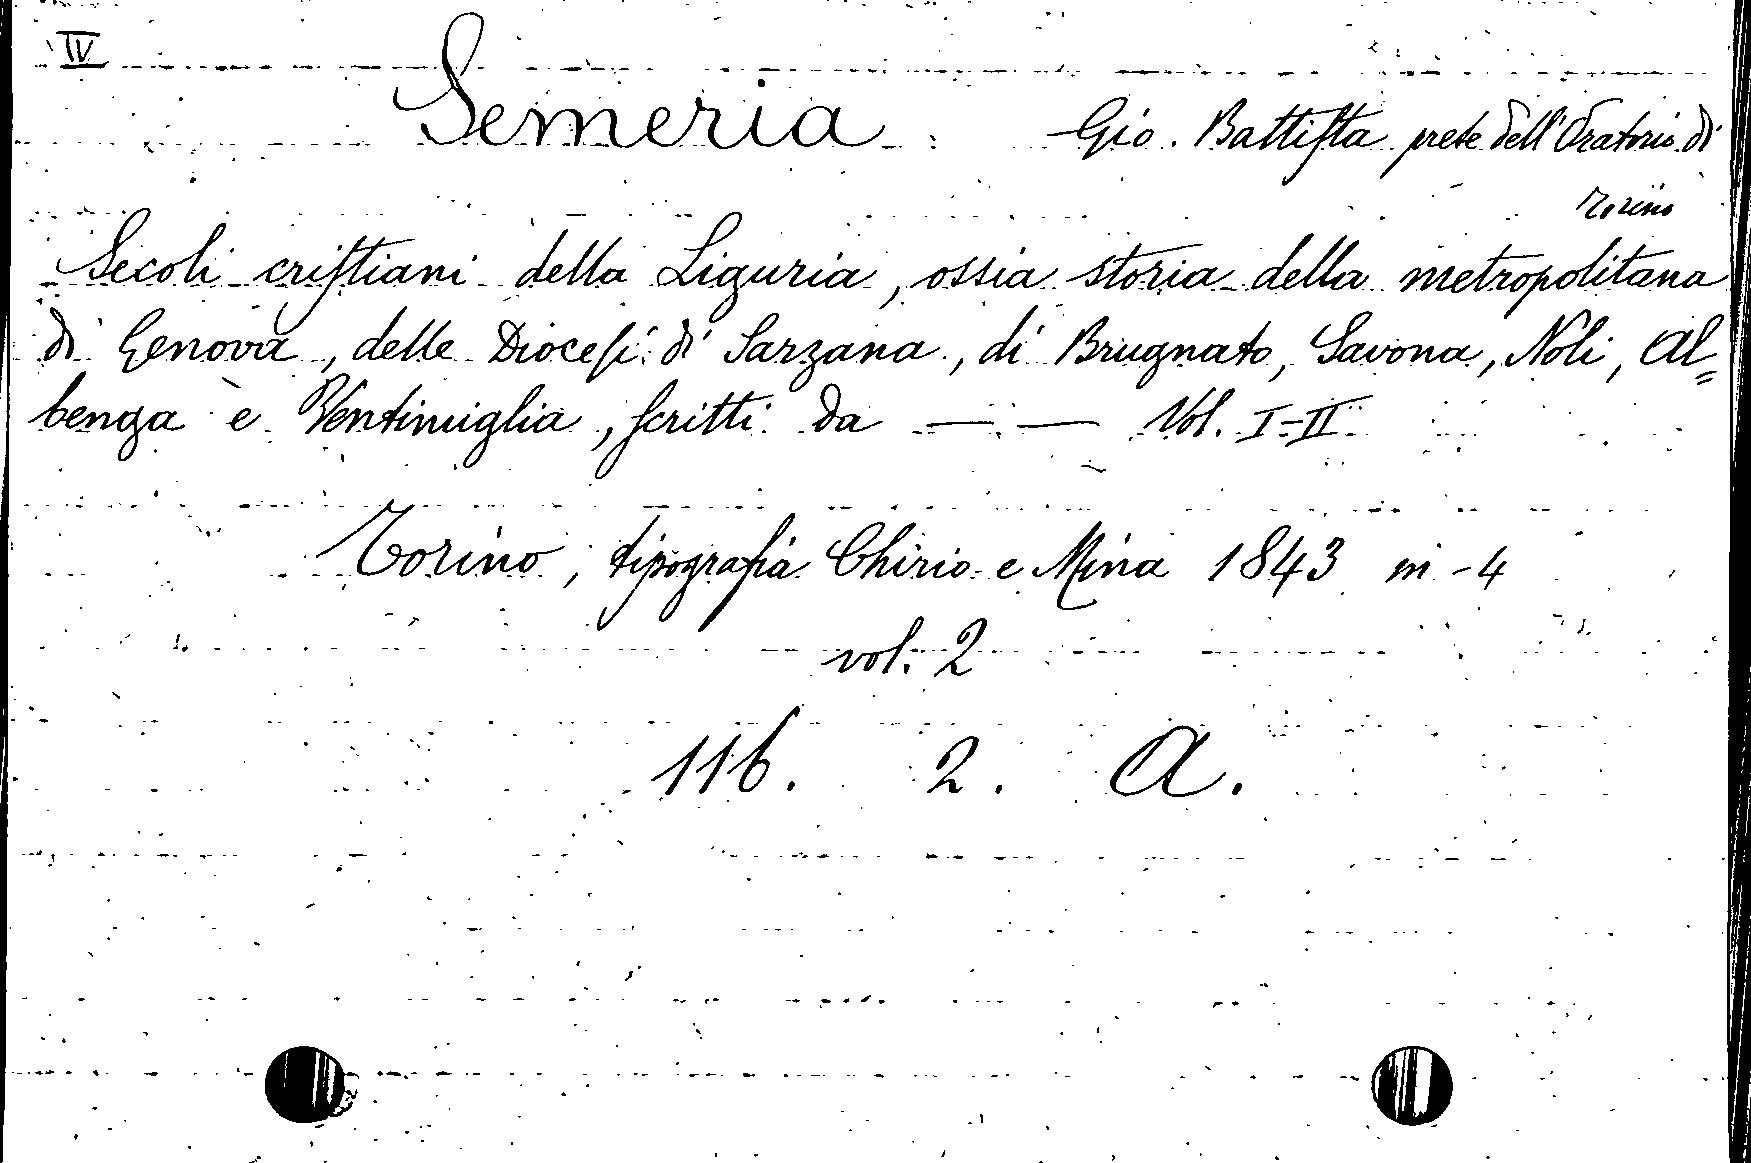 IV
Semeria Gio. Battista prete dell'Oratorio di
Torino
Secoli cristiani della Liguria, ossia storia della metropolitana
di Genova, delle Diocesi di Sarzana, di Brugnato, Savona, Noli, Al=
benga e Ventimiglia, scritti da — — Vol. I-II
Torino, tipografia Chirio e Mina 1843 in-4
vol. 2
116. 2. A.